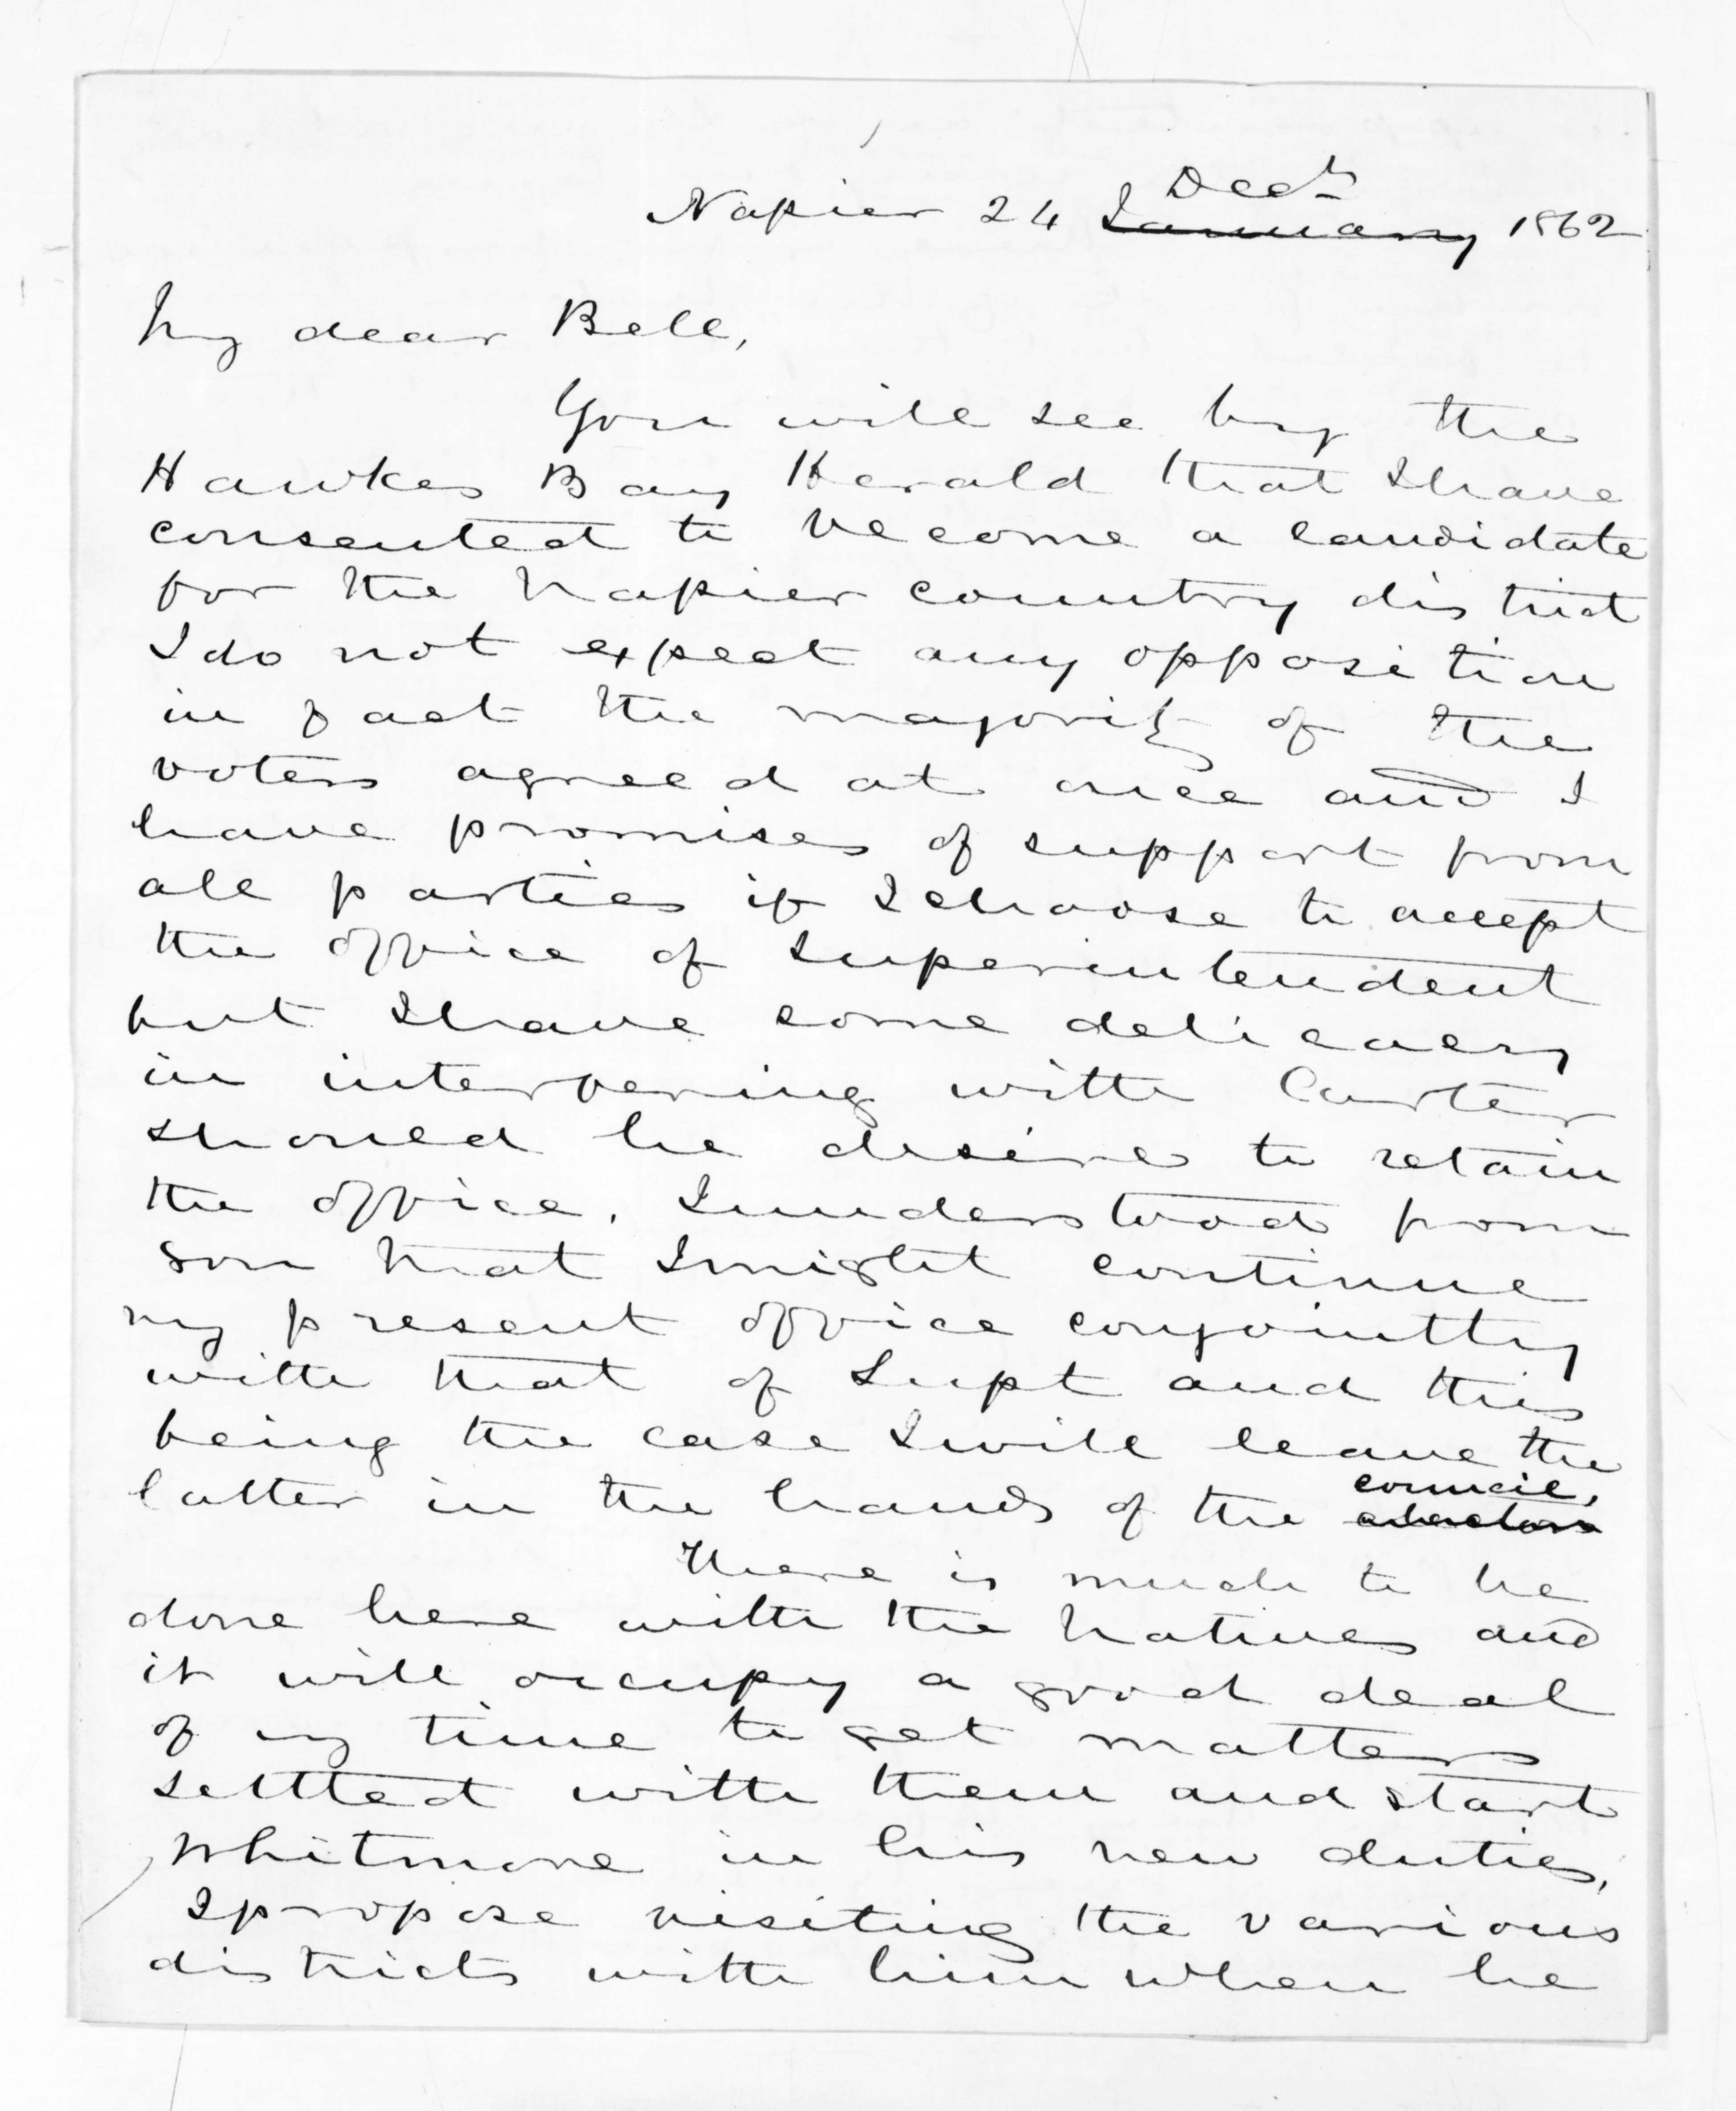 Decr
Napier 24 January 1862
My dear Bell,
You will see by the
Hawkes Bay Herald that I have
consented to become a candidate
for the Napier country district
I do not expect any opposition
in fact the majority of the
voters agreed at once and I
have promises of support from
all parties if I choose to accept
the office of Superintendent
but I have some delicacy
in interfering with Carter
should he desire to retain
the office. I understood from
you that I might continue
my present office conjointly
with that of Supt and this
being the case I will leave the
council,
latter in the hands of the electors
There is much to be
done here with the Natives and
it will occupy a good deal
of my time to get matters
settled with them and start
Whitmore in his new duties,
I propose visiting the various
districts with him when he